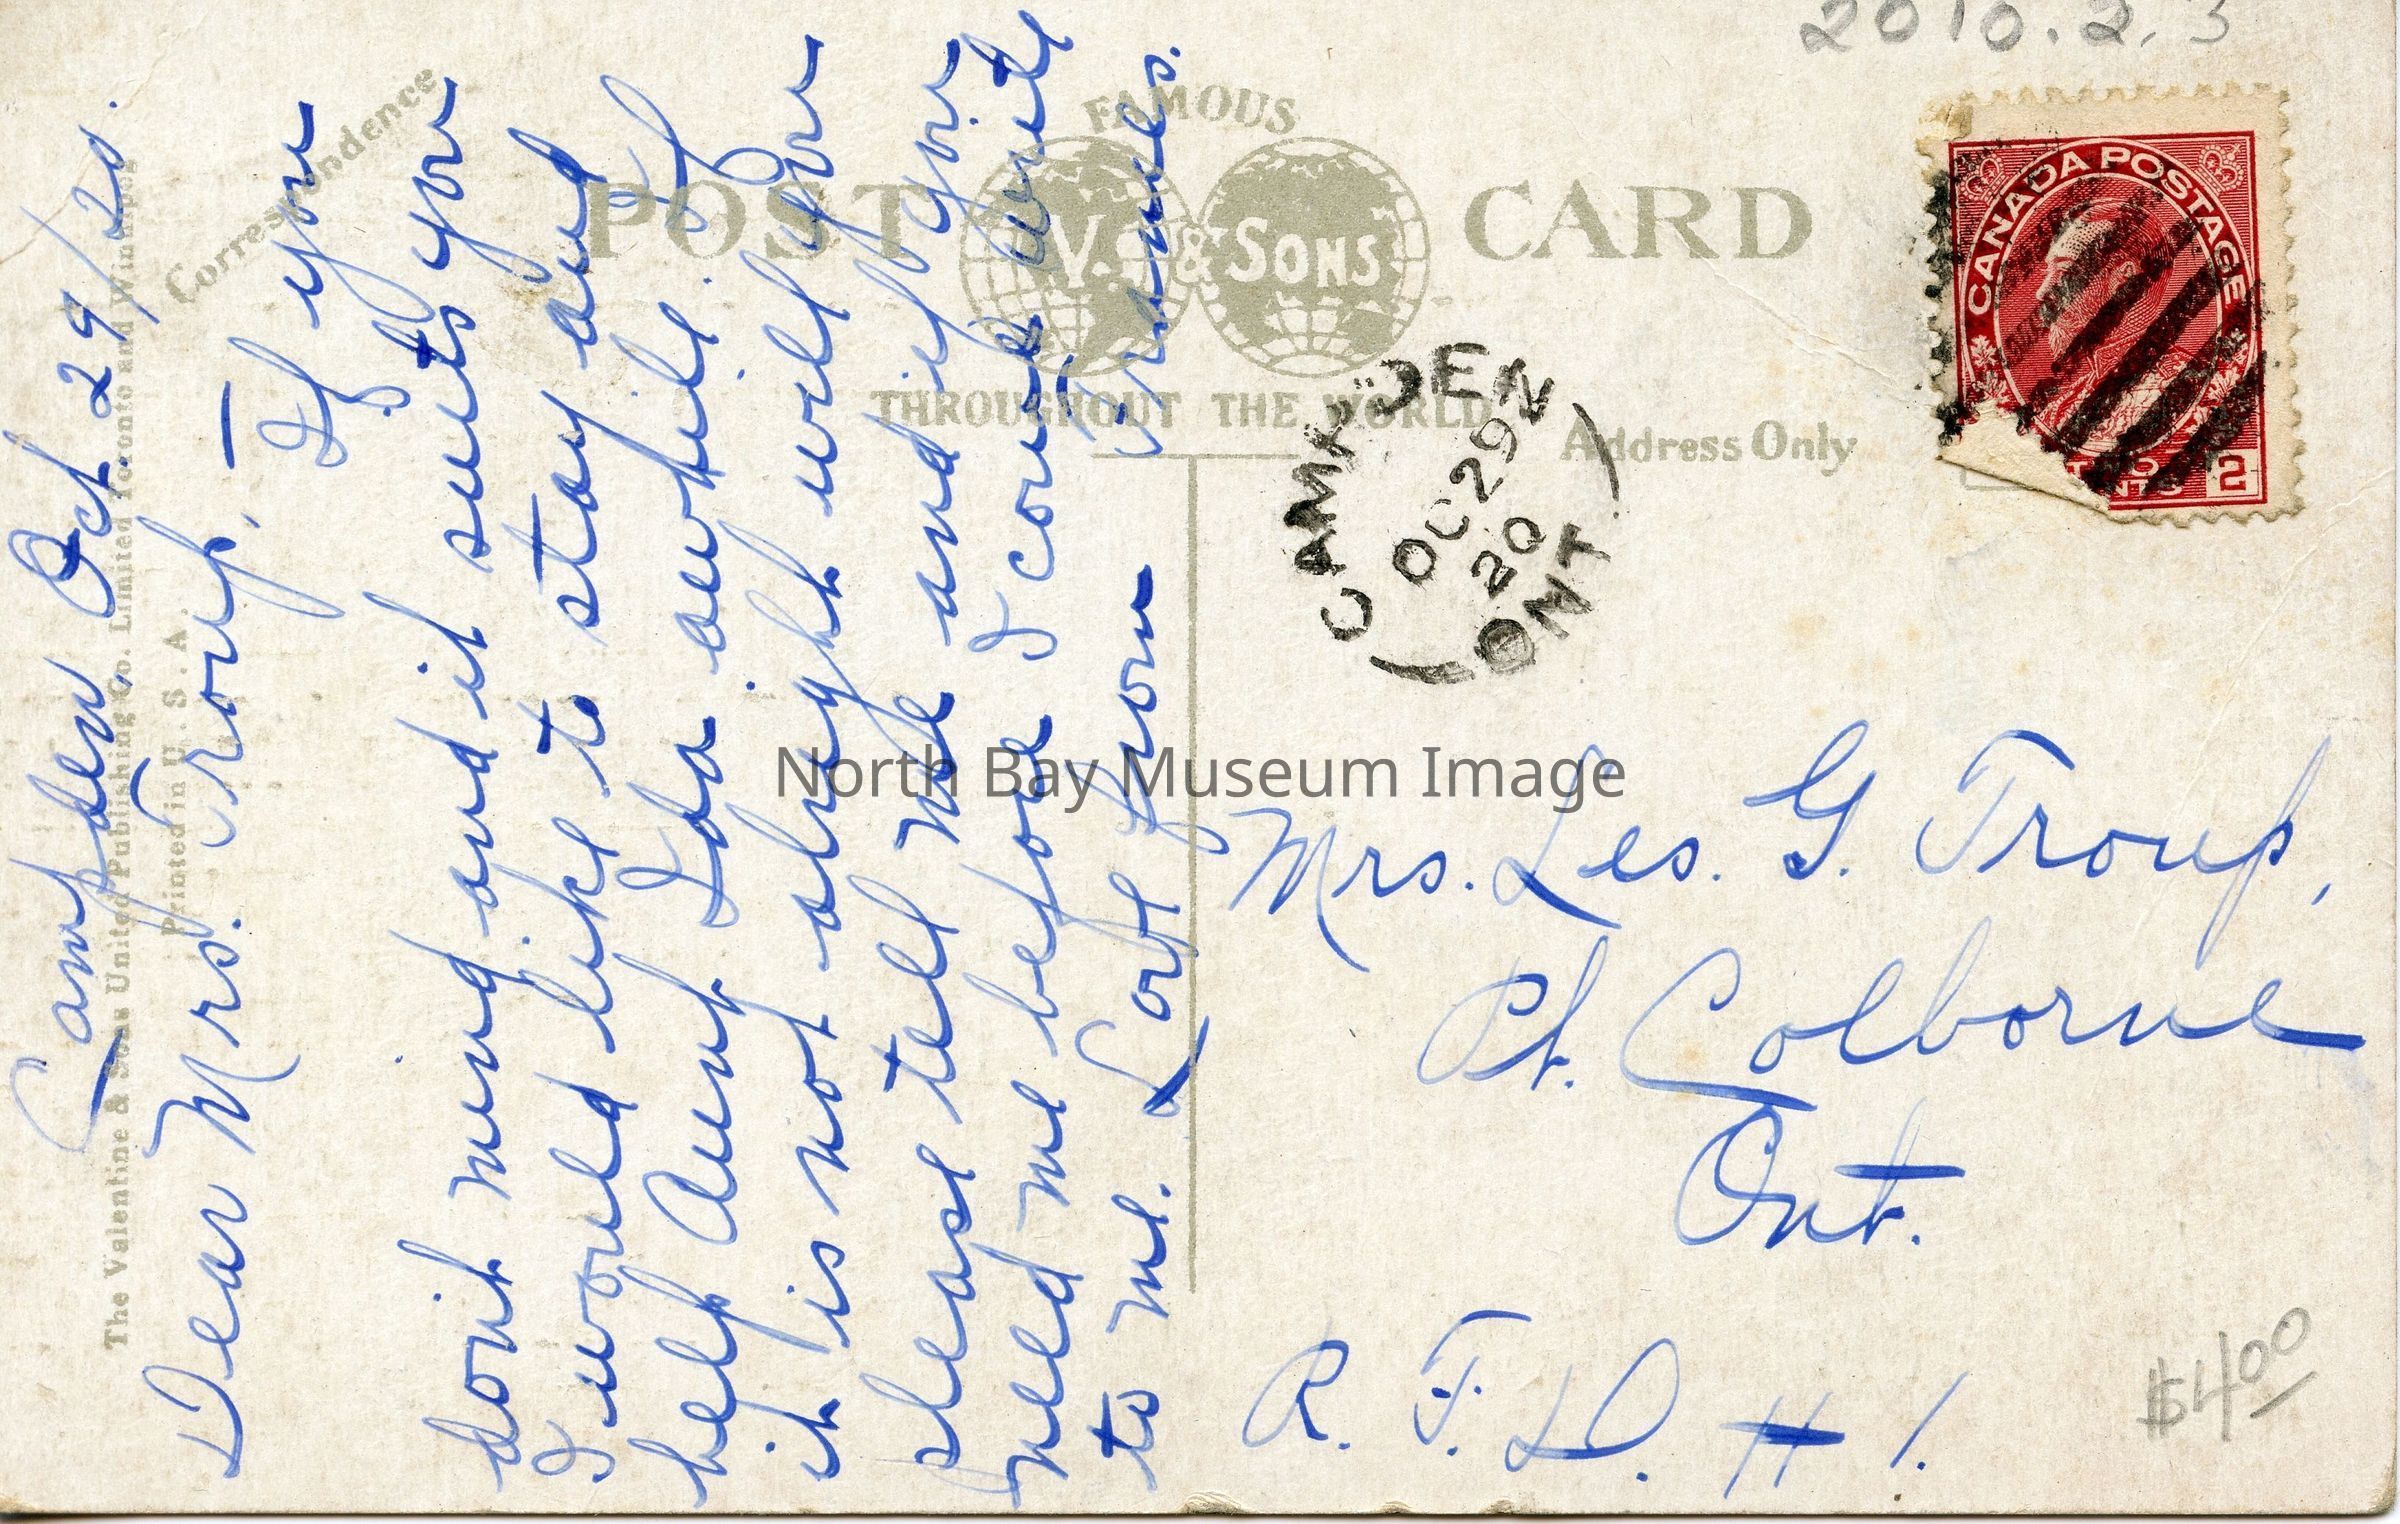 2010.2.3
Correspondence
FAMOUS
POST CARD
V. & SONS
THROUGHOUT THE WORLD
Address Only
The Valentine & Sons United Publishing Co. Limited Toronto and Winnipeg
Printed in U.S.A
CANADA POSTAGE
2
CAMPDEN
OC 29
20
ONT
Campden, Oct 29/20.
Dear Mrs. Troup, — If you
dont mind and it suits you
I would like to stay and
help Aunt Ida awhile. If
it is not alright will you
please tell me and if you
need me before I come write
to me. Love from Frances.
Mrs. Les. G. Troup,
Pt. Colborne
Ont.
R. F. D. # 1.
$4.00
North Bay Museum Image